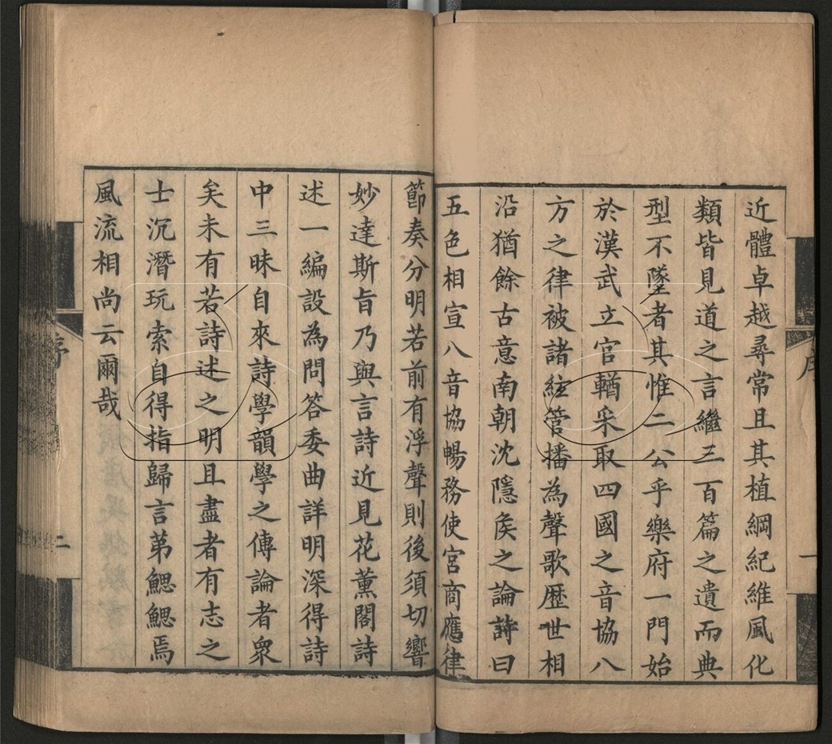 近體卓越尋常且其植綱紀維風化
類皆見道之言繼三百篇之遺而典
型不墜者其惟二公乎樂府一門始
於漢武立官輶采取四國之音協八
方之律被諸絃管播為聲歌歷世相
沿猶餘古意南朝沈隱矦之論詩曰
五色相宣八音協暢務使宮商應律
節奏分明若前有浮聲則後須切響
妙達斯旨乃與言詩近見花薰閣詩
述一編設為問答委曲詳明深得詩
中三昧自來詩學韻學之傳論者衆
矣未有若詩述之明且盡者有志之
士沉潛玩索自得指歸言苐鰓鰓焉
風流相尚云爾哉
序
二